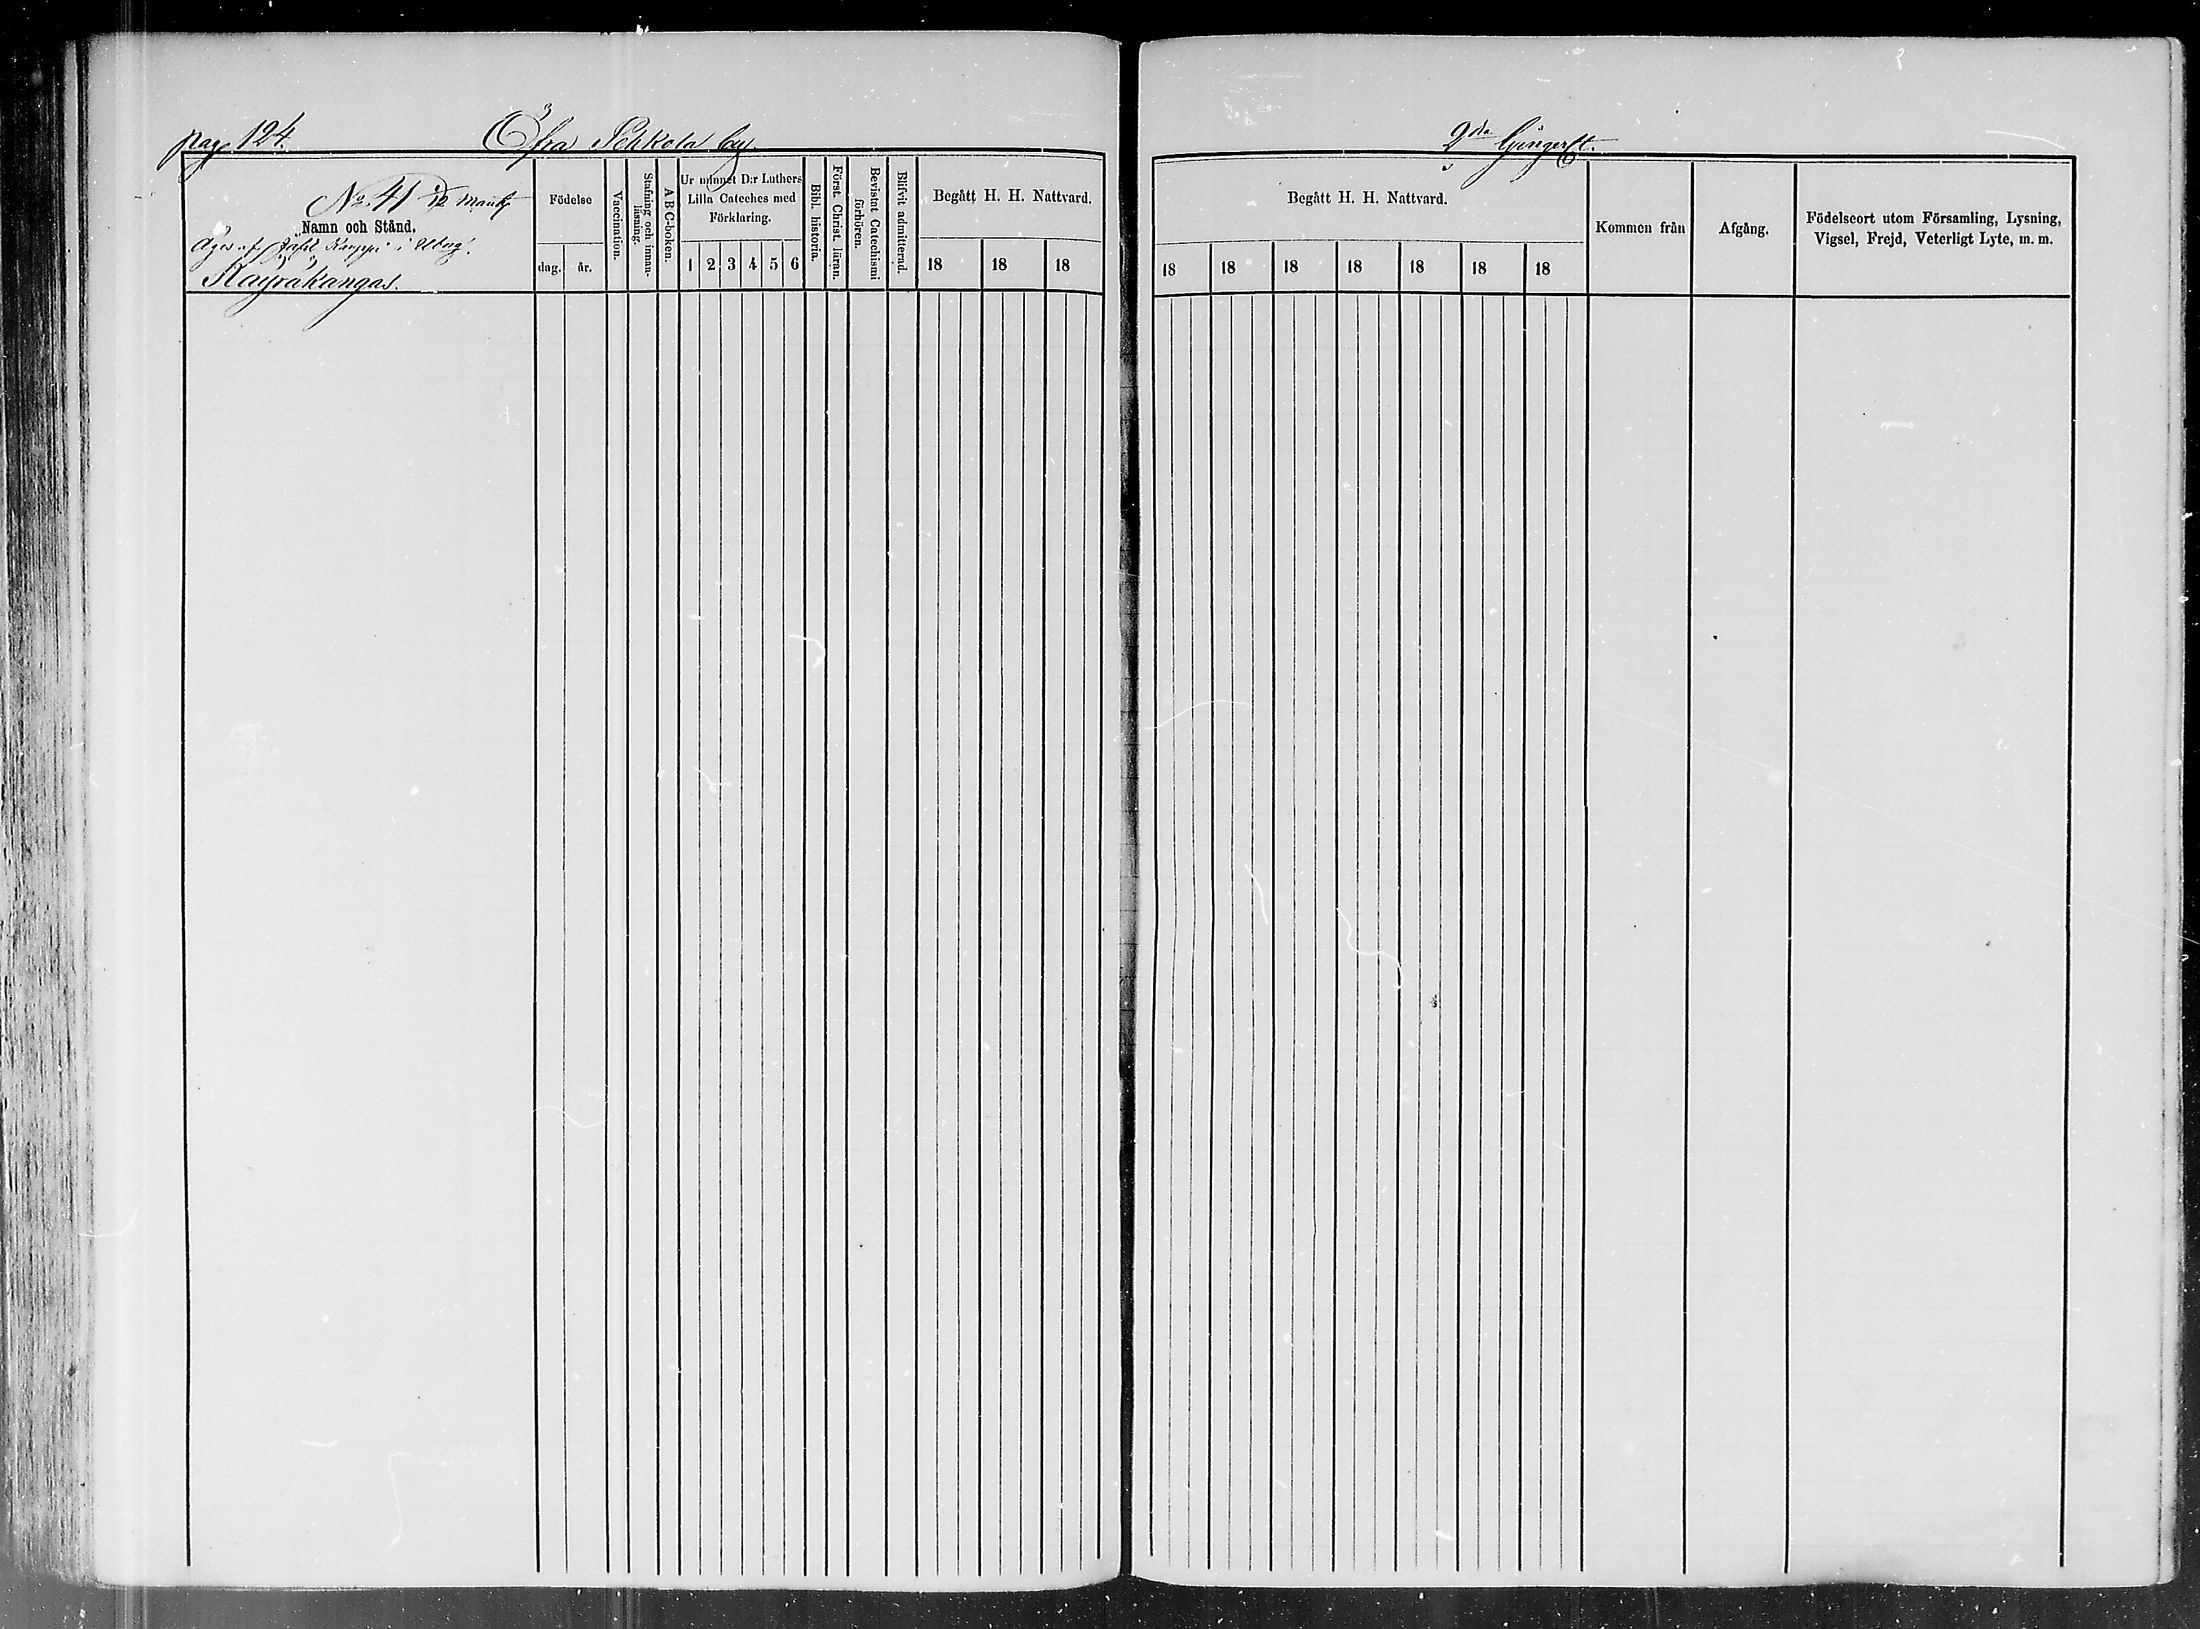 pag. 124. Öfra Pohkola by 2dra
No 41 1/2 Mantl
Namn och Stånd.
Äges af i Uborg.
Käyräkangas.
Födelse
dag. år.
Vaccination.
Stafning och innanläsning.
A B C-boken.
Ur minnet D:r Luthers
Lilla Cateches med
Förklaring.
1 2 3 4 5 6
Bibl. historia.
Först. Christ. läran.
Bevistat Catechismi förhören.
Blifvit admitterad.
Begått H. H. Nattvard.
18 18 18
Begått H. H. Nattvard.
18 18 18 18 18 18 18
Kommen från
Afgång.
Födelseort utom Församling, Lysning,
Vigsel, Frejd, Veterligt Lyte, m. m.